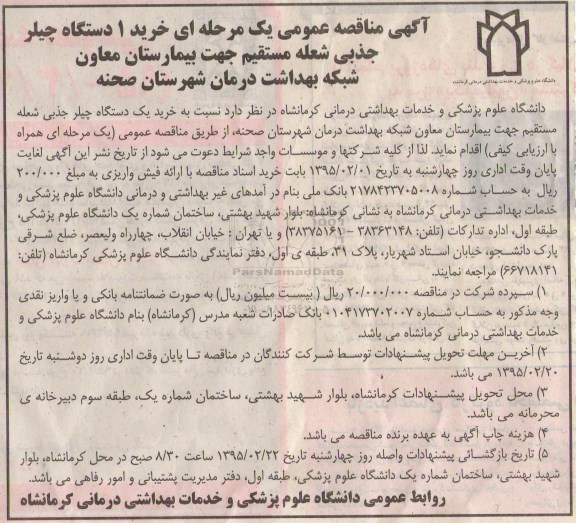 آگهی مناقصه عمومی یک مرحله ای خرید ۱ دستگاه چیلر
جذبی شعله مستقیم جهت بیمارستان معاون
شبکه بهداشت درمان شهرستان صحنه
دانشگاه علوم پزشکی و خدمات بهداشتی درمانی کرمانشاه
دانشگاه علوم پزشکی و خدمات بهداشتی درمانی کرمانشاه در نظر دارد نسبت به خرید یک دستگاه چیلر جذبی شعله
مستقیم جهت بیمارستان معاون شبکه بهداشت درمان شهرستان صحنه، از طریق مناقصه عمومی (یک مرحله ای همراه
با ارزیابی کیفی) اقدام نماید. لذا از کلیه شرکتها و موسسات واجد شرایط دعوت می شود از تاریخ نشر این آگهی لغایت
پایان وقت اداری روز چهارشنبه به تاریخ ۱۳۹۵/۰۲/۰۱ بابت خرید اسناد مناقصه با ارائه فیش واریزی به مبلغ ۲۰۰/۰۰۰
ریال به حساب شماره ۲۱۷۸۴۲۳۷۰۵۰۰۸ بانک ملی بنام در آمدهای غیر بهداشتی و درمانی دانشگاه علوم پزشکی و
خدمات بهداشتی درمانی کرمانشاه به نشانی کرمانشاه: بلوار شهید بهشتی، ساختمان شماره یک دانشگاه علوم پزشکی،
طبقه اول، اداره تدارکات (تلفن: ۳۸۳۶۳۱۴۸ – ۳۸۳۷۵۱۶۱) و یا تهران : خیابان انقلاب، چهارراه ولیعصر، ضلع شرقی
پارک دانشجو، خیابان استاد شهریار، پلاک ۳۹، طبقه ی اول، دفتر نمایندگی دانشگاه علوم پزشکی کرمانشاه (تلفن:
۶۶۷۱۸۱۴۱) مراجعه نمایند.
ParsNamadData
۱) سپرده شرکت در مناقصه ۲۰/۰۰۰/۰۰۰ ریال ( بیست میلیون ریال) به صورت ضمانتنامه بانکی و یا واریز نقدی
وجه مذکور به حساب شماره ۰۱۰۴۱۷۳۷۰۲۰۰۷ بانک صادرات شعبه مدرس (کرمانشاه) بنام دانشگاه علوم پزشکی و
خدمات بهداشتی درمانی کرمانشاه می باشد.
۲) آخرین مهلت تحویل پیشنهادات توسط شرکت کنندگان در مناقصه تا پایان وقت اداری روز دوشنبه تاریخ
۱۳۹۵/۰۲/۲۰ می باشد.
۳) محل تحویل پیشنهادات کرمانشاه، بلوار شهید بهشتی، ساختمان شماره یک، طبقه سوم دبیرخانه ی
محرمانه می باشد.
۴) هزینه چاپ آگهی به عهده برنده مناقصه می باشد.
۵) تاریخ بازگشائی پیشنهادات واصله روز چهارشنبه تاریخ ۱۳۹۵/۰۲/۲۲ ساعت ۸/۳۰ صبح در محل کرمانشاه، بلوار
شهید بهشتی، ساختمان شماره یک دانشگاه علوم پزشکی، طبقه اول، دفتر مدیریت پشتیبانی و امور رفاهی می باشد.
روابط عمومی دانشگاه علوم پزشکی و خدمات بهداشتی درمانی کرمانشاه